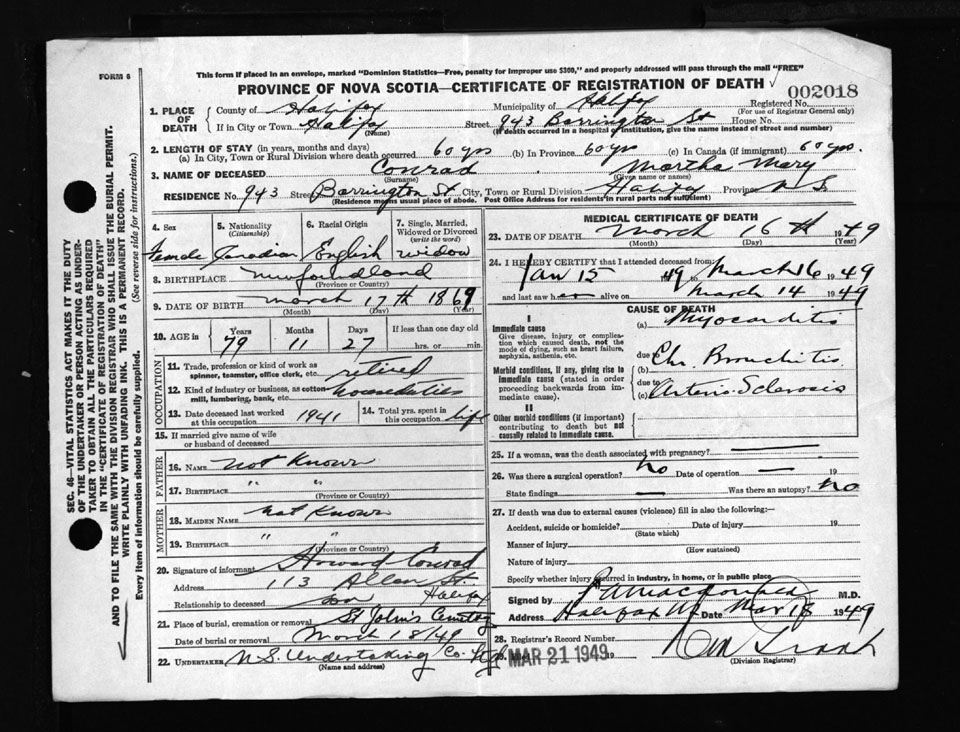 FORM 6
This form if placed in an envelope, marked "Dominion Statistics—Free, penalty for improper use $300," and properly addressed will pass through the mail "FREE"
PROVINCE OF NOVA SCOTIA—CERTIFICATE OF REGISTRATION OF DEATH
002018
1. PLACE OF DEATH
County of Halifax Municipality of Halifax Registered No.
(For use of Registrar General only)
If in City or Town Halifax Street 943 Barrington St House No.
(Name) (If death occurred in a hospital or institution, give the name instead of street and number)
2. LENGTH OF STAY (in years, months and days)
(a) In City, Town or Rural Division where death occurred 60 yrs (b) In Province 60 yrs (c) In Canada (if immigrant) 60 yrs.
3. NAME OF DECEASED Conrad Martha Mary
(Surname) (Given name or names)
RESIDENCE No. 943 Street Barrington St City, Town or Rural Division Halifax Province N S
(Residence means usual place of abode. Post Office Address for residents in rural parts not sufficient)
4. Sex
5. Nationality (Citizenship)
6. Racial Origin
7. Single, Married, Widowed or Divorced (write the word)
Female Canadian English widow
8. BIRTHPLACE Newfoundland
(Province or Country)
9. DATE OF BIRTH March 17th 1869
(Month) (Day) (Year)
10. AGE in Years Months Days If less than one day old
79 11 27 hrs. or min.
OCCUPATION
11. Trade, profession or kind of work as spinner, teamster, office clerk, etc. retired
12. Kind of industry or business, as cotton mill, lumbering, bank, etc. house duties
13. Date deceased last worked at this occupation 1941
14. Total yrs. spent in this occupation life
15. If married give name of wife or husband of deceased
FATHER
16. NAME Not Known
17. BIRTHPLACE " "
(Province or Country)
MOTHER
18. MAIDEN NAME Not Known
19. BIRTHPLACE " "
(Province or Country)
20. Signature of informant Howard Conrad
Address 113 Allan St. Halifax
Relationship to deceased son
21. Place of burial, cremation or removal St John's Cemetery
Date of burial or removal March 18/49
22. UNDERTAKER N.S. Undertaking Co.
(Name and address)
MEDICAL CERTIFICATE OF DEATH
23. DATE OF DEATH March 16th 1949
(Month) (Day) (Year)
24. I HEREBY CERTIFY that I attended deceased from:
Jan 15 49 to March 16 1949
and last saw h er alive on March 14 1949
CAUSE OF DEATH
I
Immediate cause
Give disease, injury or complication which caused death, not the mode of dying, such as heart failure, asphyxia, asthenia, etc.
(a) Myocarditis
due to
(b) Chr Bronchitis
Morbid conditions, if any, giving rise to immediate cause (stated in order proceeding backwards from immediate cause).
due to
(c) Arterio Sclerosis
II
Other morbid conditions (if important) contributing to death but not causally related to immediate cause.
25. If a woman, was the death associated with pregnancy? —
26. Was there a surgical operation? no Date of operation — 19
State findings — Was there an autopsy? no
27. If death was due to external causes (violence) fill in also the following:—
Accident, suicide or homicide? Date of injury 19
(State which)
Manner of injury
(How sustained)
Nature of injury
Specify whether injury occurred in industry, in home, or in public place
Signed by Macdonald M.D.
Address Halifax NS Date Mar 18 1949
28. Registrar's Record Number
MAR 21 1949 19
(Division Registrar)
SEC. 46—VITAL STATISTICS ACT MAKES IT THE DUTY
OF THE UNDERTAKER OR PERSON ACTING AS UNDER-
TAKER TO OBTAIN ALL THE PARTICULARS REQUIRED
IN THE "CERTIFICATE OF REGISTRATION OF DEATH"
AND TO FILE THE SAME WITH THE DIVISION REGISTRAR WHO SHALL ISSUE THE BURIAL PERMIT.
WRITE PLAINLY WITH UNFADING INK. THIS IS A PERMANENT RECORD.
Every item of information should be carefully supplied. (See reverse side for instructions.)